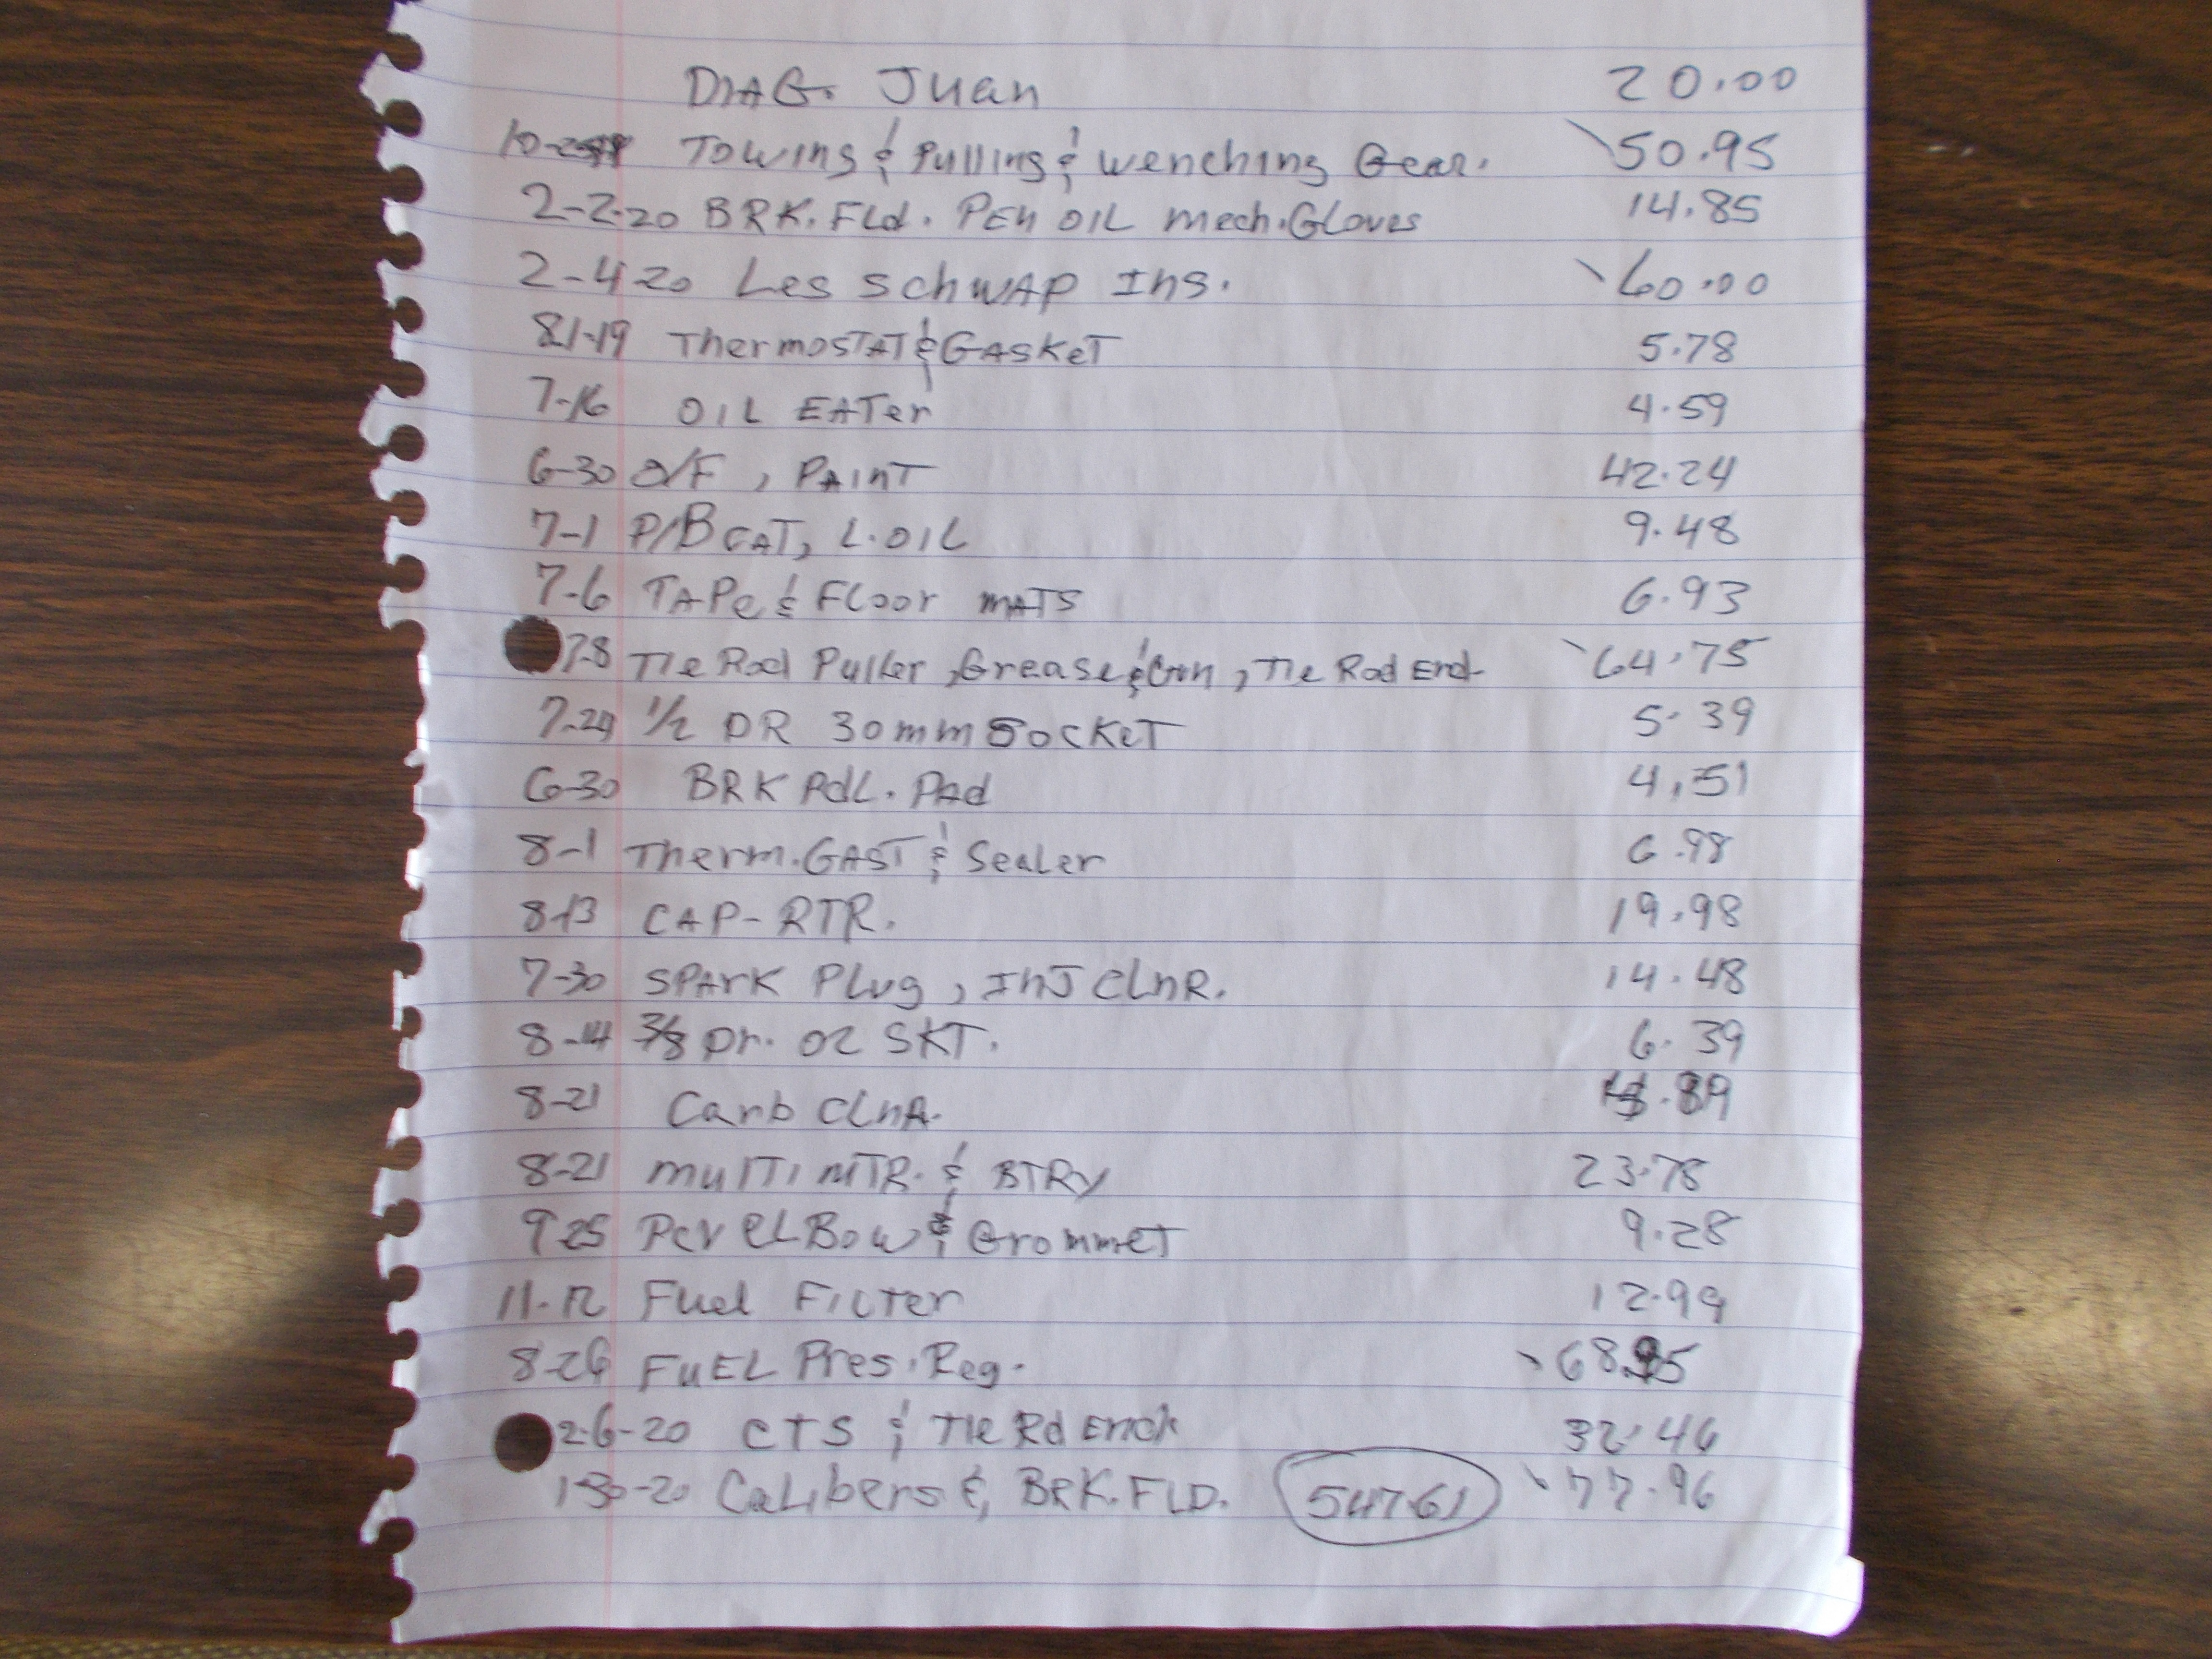 DIAG. Juan 20.00
Towing & Pulling & Wenching Gear. 50.95
2-2-20 BRK. FLd. PEn OIL mech. Gloves 14.85
2-4-20 Les SchwAP Ins. 60.00
8-1-19 ThermoSTAT & GASKeT 5.78
7-16 OIL EATer 4.59
6-30 O/F, PAInT 42.24
7-1 P/B CAT, L.OIL 9.48
7-6 TAPe & FLoor mATS 6.93
7-8 TIe Rod Puller, Grease & Gun, TIe Rod End 64.75
7-29 1/2 DR 30mm SocKeT 5.39
6-30 BRK PdL. PAd 4.51
8-1 Therm. GAST & Sealer 6.98
8-13 CAP-RTR. 19.98
7-30 SPArK PLug, InJ CLnR. 14.48
8-14 3/8 Dr. O2 SKT. 6.39
8-21 Carb CLnR.
8-21 mulTI mTR. & BTRY 23.78
9-25 Pcv eLBow & Grommet 9.28
11-12 Fuel FILTer 12.99
8-26 FuEL Pres. Reg. 68.95
2-6-20 CTS & TIe Rd End 32.46
1-30-20 CaLibers & BRK. FLD. 547.61 77.96